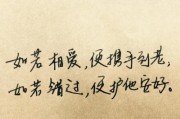 如若相爱,便携手到老;
如若错过,便护他安好。